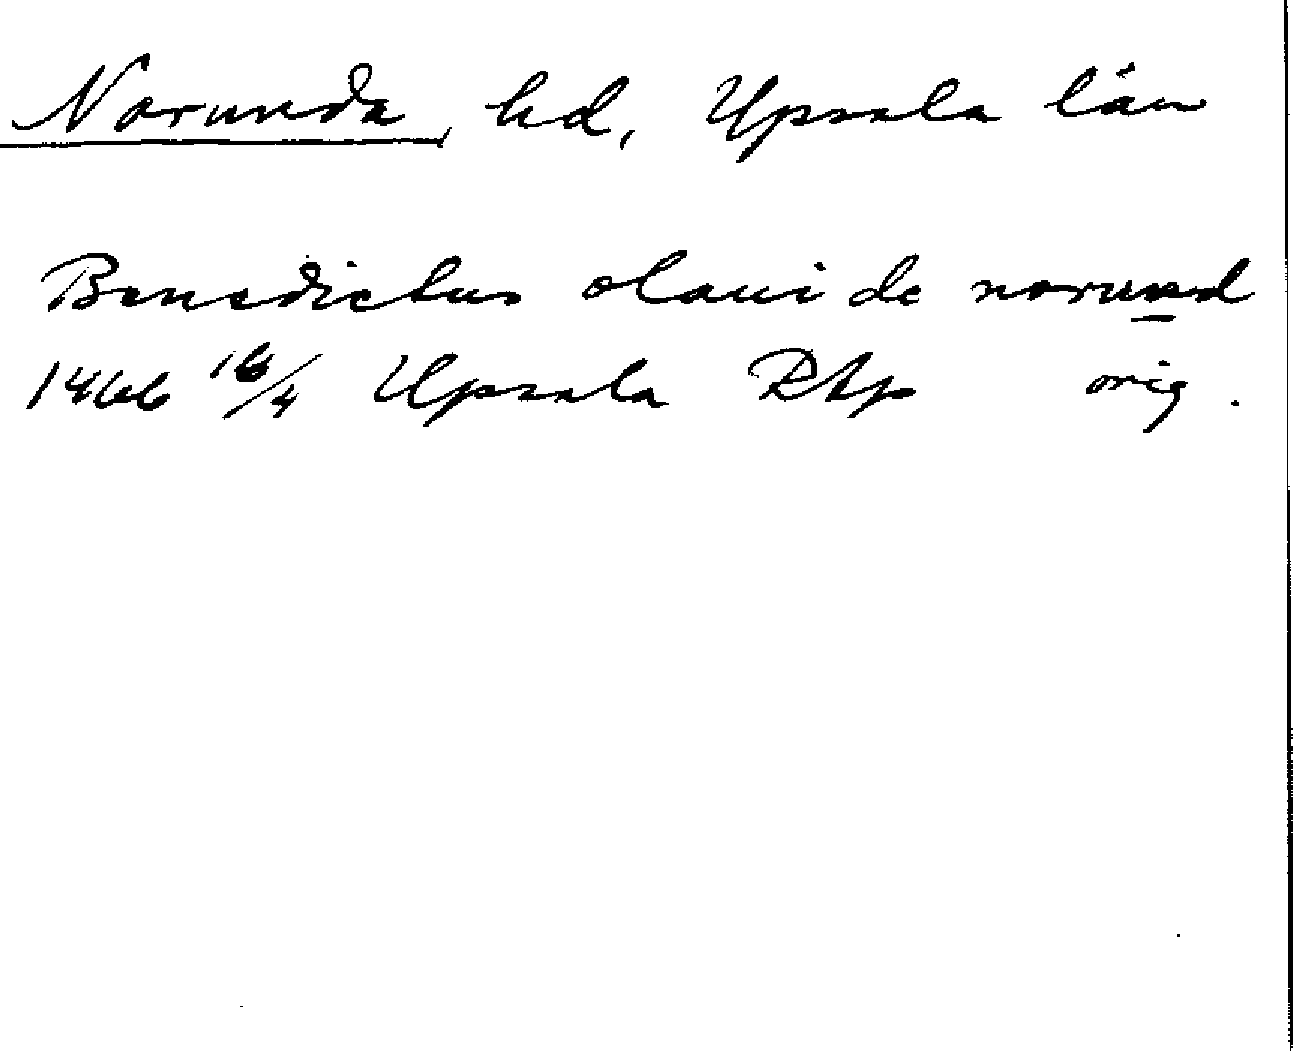 Norunda, hd, Upsala län
Benedictus olaui de norund
1466 16/4 Upsala RAp orig.